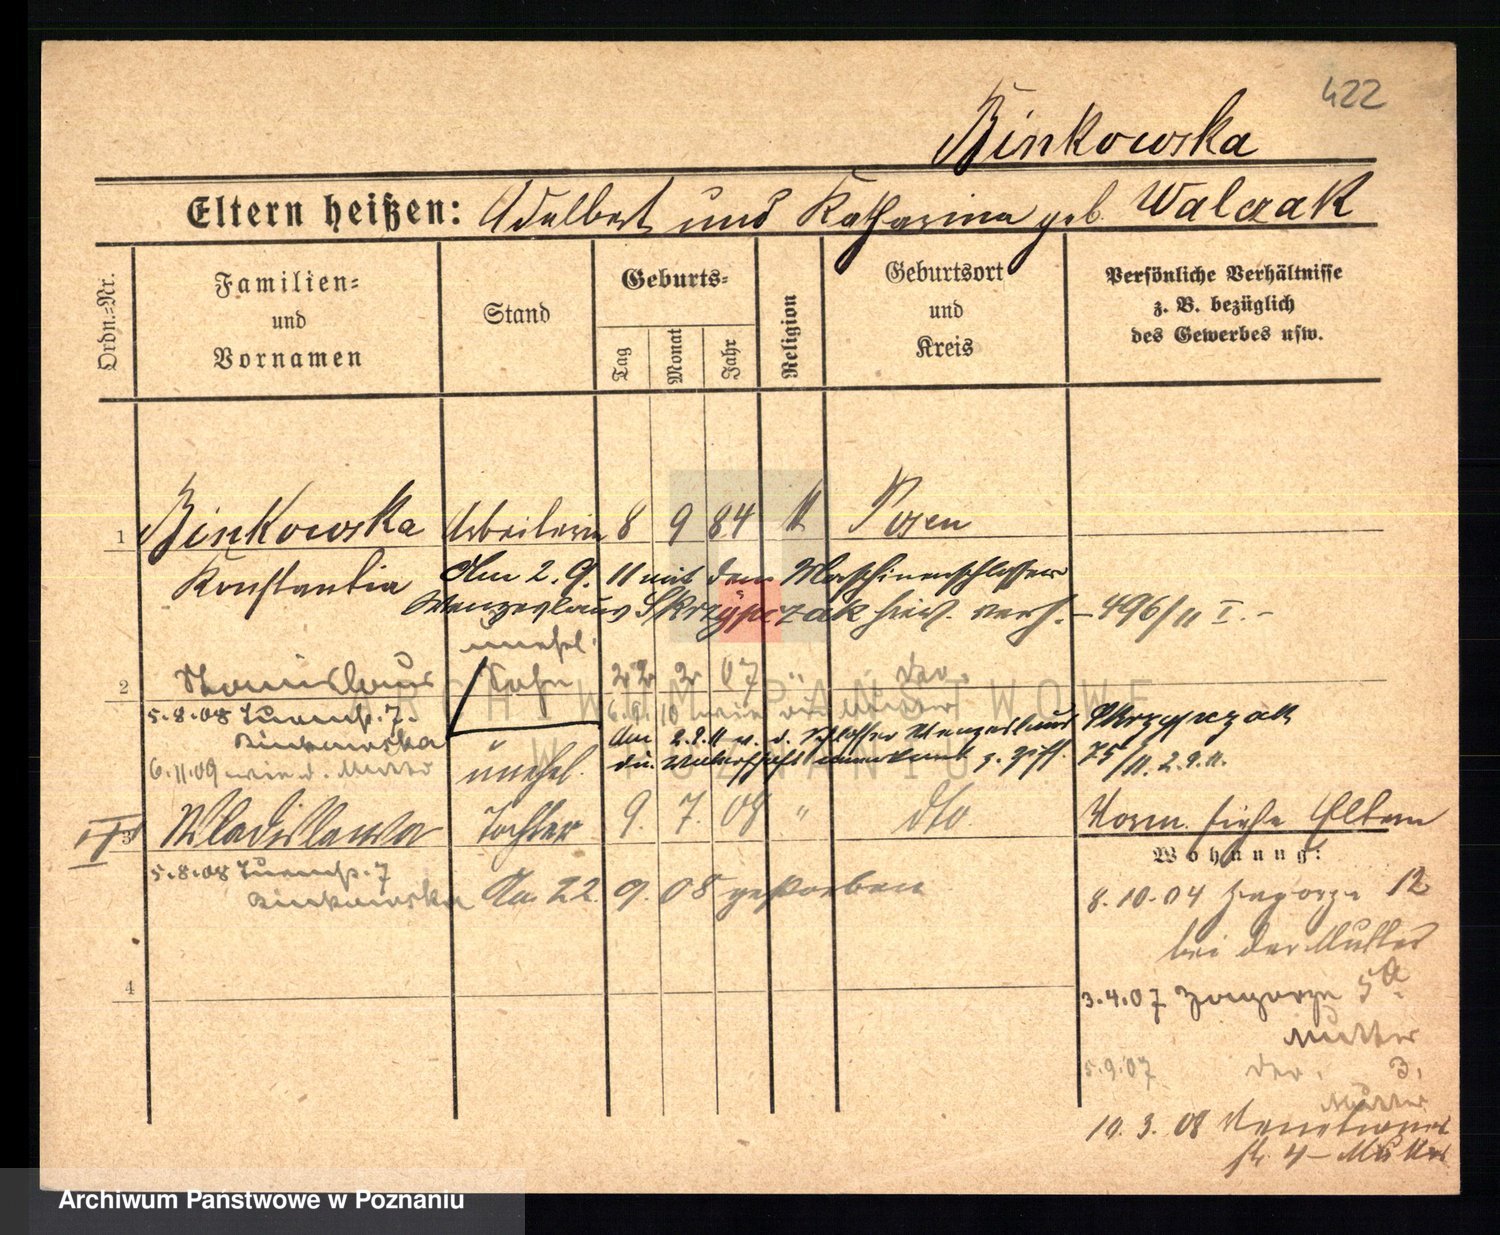 422
Binkowska
Eltern heißen: Adalbert und Katharina geb. Walczak
Ordn.=Nr.
Familien=
und
Vornamen
Stand
Geburts=
Tag
Monat
Jahr
Religion
Geburtsort
und
Kreis
Persönliche Verhältnisse
z. B. bezüglich
des Gewerbes usw.
1 Binkowska Arbeiterin 8 9 84 k Posen
Konstantia Am 2. 9. 11 mit dem Maschinenschlosser
Wenzeslaus Skrzypczak hies. verh. – 496/11 I. –
unehel.
2 Stanislaus Sohn 22 2 07 " dto.
5.8.08 Turmst. 7.
Binkowska
6.9.10 wie die Mutter
Am 2.9.11 v. d. Schlosser Wenzeslaus Skrzypczak
die Vaterschaft anerkannt z. Ziff. 75/11. 2.9.11.
6.11.09 wie d. Mutter
unehel.
3 Wladislawa Tochter 9. 7. 08 " dto
Vorm. siehe Eltern
Wohnung:
5.8.08 Turmst. 7
Binkowska
Am 22. 9. 08 gestorben
8.10.04 Zagorze 12
bei der Mutter
4
3.4.07 Zagorze 5a
Mutter
5.9.07 dto. 3.
Mutter
10. 3. 08 Venetianer
st. 4 – Mutter
ARCHIWUM PAŃSTWOWE
W POZNANIU
Archiwum Państwowe w Poznaniu